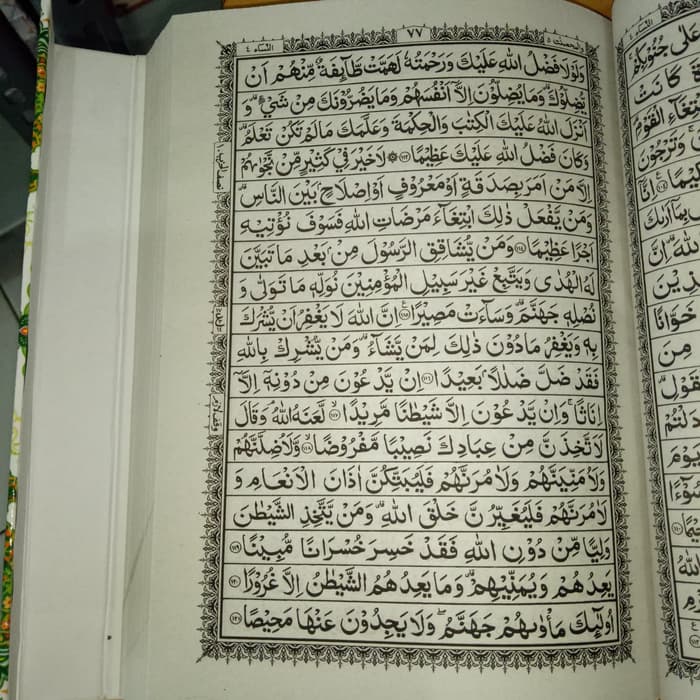 النساء ٤
٧٧
والمحصنت ٥
وَلَوْلَا فَضْلُ اللّٰهِ عَلَيْكَ وَرَحْمَتُهٗ لَهَمَّتْ طَّآئِفَةٌ مِّنْهُمْ اَنْ
يُّضِلُّوْكَ ؕ وَمَا يُضِلُّوْنَ اِلَّاۤ اَنْفُسَهُمْ وَمَا يَضُرُّوْنَكَ مِنْ شَيْءٍ ؕ وَ
اَنْزَلَ اللّٰهُ عَلَيْكَ الْكِتٰبَ وَالْحِكْمَةَ وَعَلَّمَكَ مَا لَمْ تَكُنْ تَعْلَمُ ؕ
وَكَانَ فَضْلُ اللّٰهِ عَلَيْكَ عَظِيْمًا ﴿١١٣﴾ لَا خَيْرَ فِيْ كَثِيْرٍ مِّنْ نَّجْوٰىهُمْ
اِلَّا مَنْ اَمَرَ بِصَدَقَةٍ اَوْ مَعْرُوْفٍ اَوْ اِصْلَاحٍۢ بَيْنَ النَّاسِ ؕ
وَمَنْ يَّفْعَلْ ذٰلِكَ ابْتِغَآءَ مَرْضَاتِ اللّٰهِ فَسَوْفَ نُؤْتِيْهِ
اَجْرًا عَظِيْمًا ﴿١١٤﴾ وَمَنْ يُّشَاقِقِ الرَّسُوْلَ مِنْۢ بَعْدِ مَا تَبَيَّنَ
لَهُ الْهُدٰى وَيَتَّبِعْ غَيْرَ سَبِيْلِ الْمُؤْمِنِيْنَ نُوَلِّهٖ مَا تَوَلّٰى وَ
نُصْلِهٖ جَهَنَّمَ ؕ وَسَآءَتْ مَصِيْرًا ﴿١١٥﴾ اِنَّ اللّٰهَ لَا يَغْفِرُ اَنْ يُّشْرَكَ
بِهٖ وَيَغْفِرُ مَا دُوْنَ ذٰلِكَ لِمَنْ يَّشَآءُ ؕ وَمَنْ يُّشْرِكْ بِاللّٰهِ
فَقَدْ ضَلَّ ضَلٰلًاۢ بَعِيْدًا ﴿١١٦﴾ اِنْ يَّدْعُوْنَ مِنْ دُوْنِهٖۤ اِلَّاۤ
اِنٰثًا ۚ وَاِنْ يَّدْعُوْنَ اِلَّا شَيْطٰنًا مَّرِيْدًا ﴿١١٧﴾ لَّعَنَهُ اللّٰهُ ۘ وَقَالَ
لَاَتَّخِذَنَّ مِنْ عِبَادِكَ نَصِيْبًا مَّفْرُوْضًا ﴿١١٨﴾ وَّلَاُضِلَّنَّهُمْ
وَلَاُمَنِّيَنَّهُمْ وَلَاٰمُرَنَّهُمْ فَلَيُبَتِّكُنَّ اٰذَانَ الْاَنْعَامِ وَ
لَاٰمُرَنَّهُمْ فَلَيُغَيِّرُنَّ خَلْقَ اللّٰهِ ؕ وَمَنْ يَّتَّخِذِ الشَّيْطٰنَ
وَلِيًّا مِّنْ دُوْنِ اللّٰهِ فَقَدْ خَسِرَ خُسْرَانًا مُّبِيْنًا ﴿١١٩﴾
يَعِدُهُمْ وَيُمَنِّيْهِمْ ؕ وَمَا يَعِدُهُمُ الشَّيْطٰنُ اِلَّا غُرُوْرًا ﴿١٢٠﴾
اُولٰٓئِكَ مَاْوٰىهُمْ جَهَنَّمُ ؗ وَلَا يَجِدُوْنَ عَنْهَا مَحِيْصًا ﴿١٢١﴾
وقف لازم
النساء ٤
عَلٰى جُنُوْبِكُمْ
كَانَتْ
الْقَوْمِ
وَتَرْجُوْنَ
اِنَّاۤ
بِمَاۤ اَرٰىكَ
اِنَّ
خَوَّانًا
مِنَ